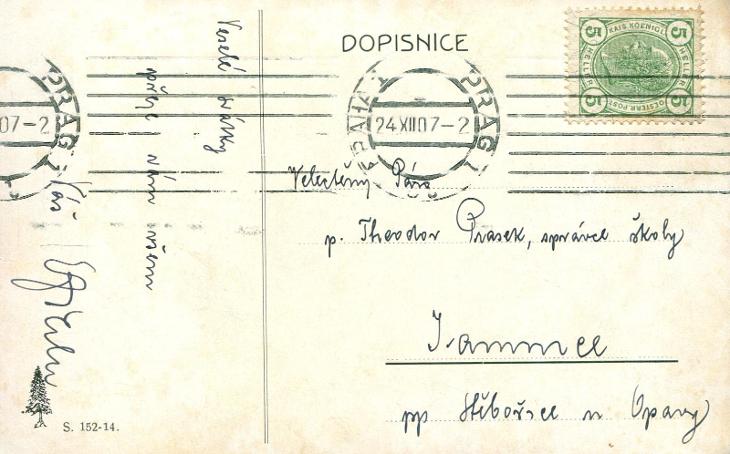 DOPISNICE
KAIS. KOENIGL.
OESTERR. POST
5 HELLER 5
5 HELLER 5
PRAG 1
PRAHA 1
24 XII 07-2
PRAG 1
07-2
Veselé svátky
přeje vám všem
Váš
Velectěný Pán
p. Theodor Prasek, správce školy
Jamnice
pp Stěbořice u Opavy
S. 152-14.